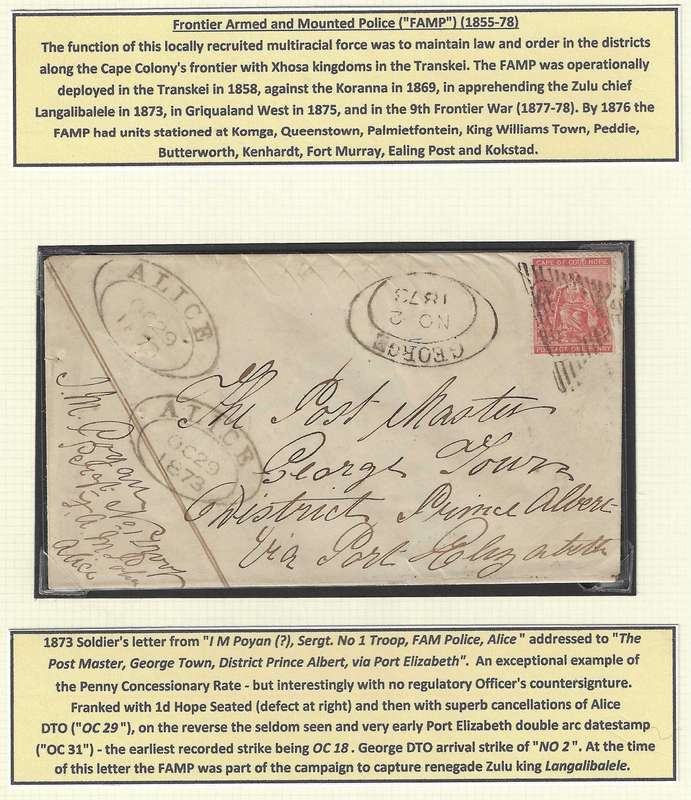 Frontier Armed and Mounted Police ("FAMP") (1855-78)
The function of this locally recruited multiracial force was to maintain law and order in the districts
along the Cape Colony's frontier with Xhosa kingdoms in the Transkei. The FAMP was operationally
deployed in the Transkei in 1858, against the Koranna in 1869, in apprehending the Zulu chief
Langalibalele in 1873, in Griqualand West in 1875, and in the 9th Frontier War (1877-78). By 1876 the
FAMP had units stationed at Komga, Queenstown, Palmietfontein, King Williams Town, Peddie,
Butterworth, Kenhardt, Fort Murray, Ealing Post and Kokstad.
ALICE
OC 29
1873
GEORGE
NO 2
1873
CAPE OF GOOD HOPE
POSTAGE ONE PENNY
ALICE
OC 29
1873
The Post Master
George Town
District Prince Albert
Via Port Elizabeth
Sergt. No 1 Troop
Alice
1873 Soldier's letter from "I M Poyan (?), Sergt. No 1 Troop, FAM Police, Alice" addressed to "The
Post Master, George Town, District Prince Albert, via Port Elizabeth". An exceptional example of
the Penny Concessionary Rate - but interestingly with no regulatory Officer's countersignture.
Franked with 1d Hope Seated (defect at right) and then with superb cancellations of Alice
DTO ("OC 29"), on the reverse the seldom seen and very early Port Elizabeth double arc datestamp
("OC 31") - the earliest recorded strike being OC 18. George DTO arrival strike of "NO 2". At the time
of this letter the FAMP was part of the campaign to capture renegade Zulu king Langalibelele.